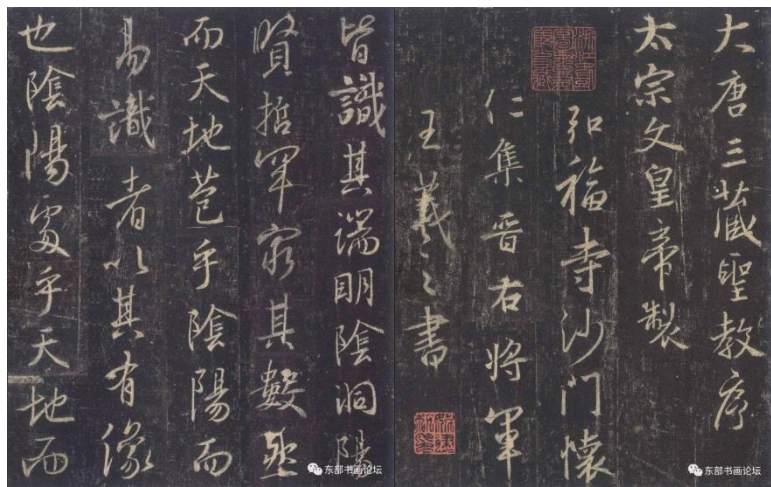 大唐三藏聖教序
太宗文皇帝製
弘福寺沙門懷
仁集晋右將軍
王羲之書
皆識其端明陰洞陽
賢哲罕窮其數然
而天地苞乎陰陽而
易識者以其有像
也陰陽處乎天地而
东部书画论坛
东部书画论坛